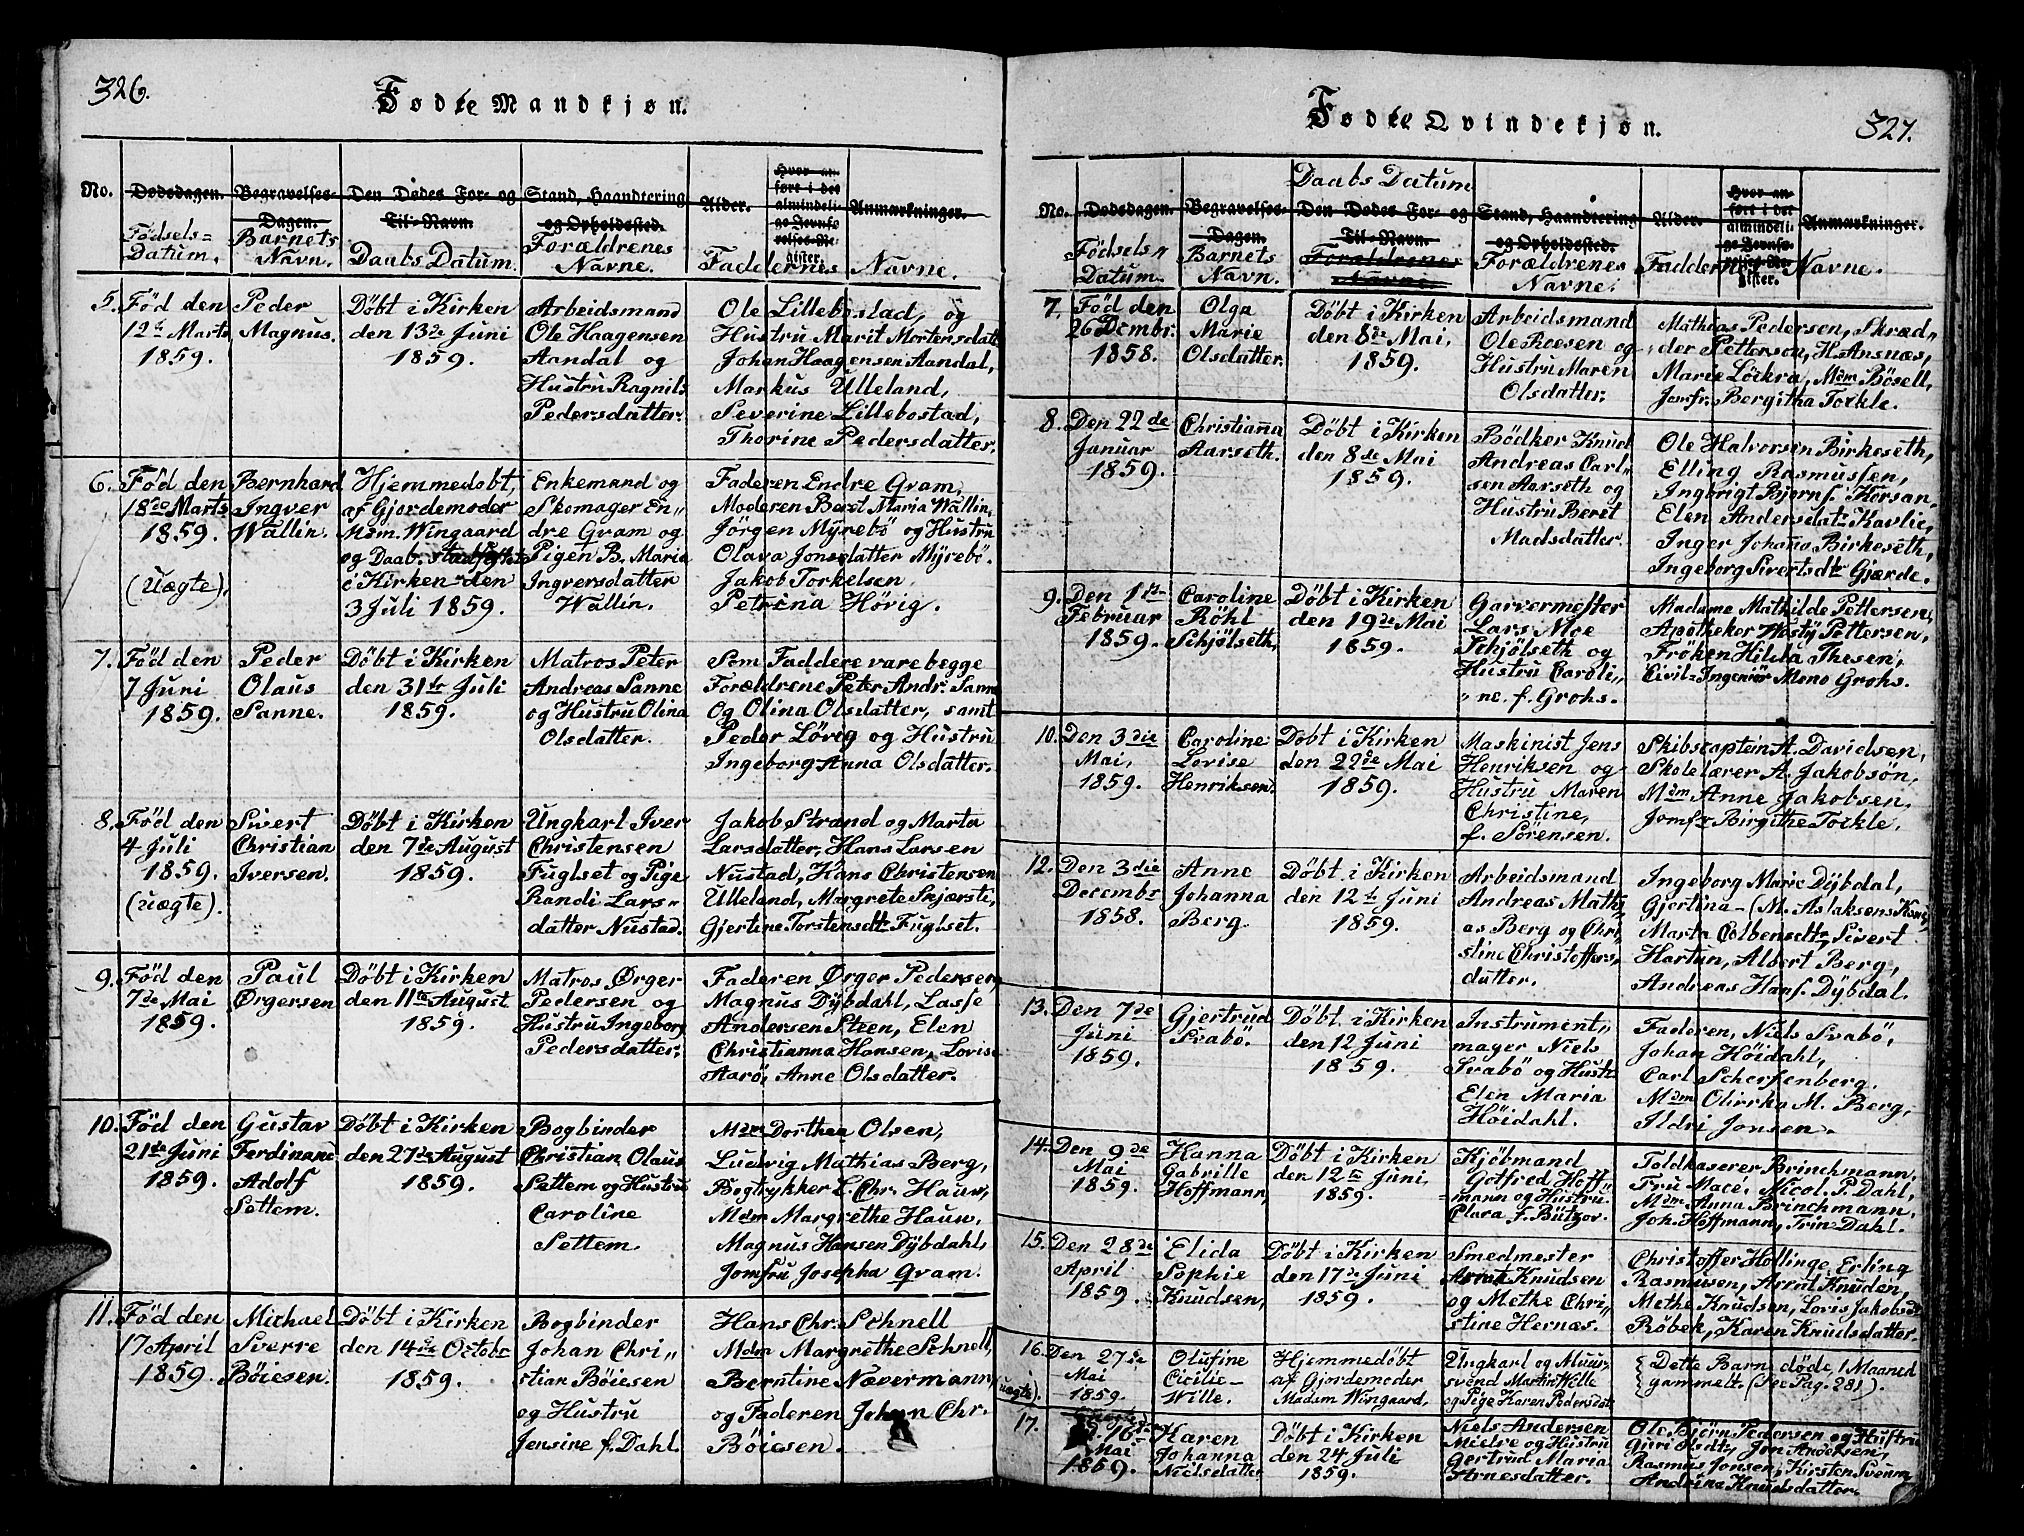 326.
Fødte Mandkjøn.
No.
Dødsdagen.
Fødsels=
Datum.
Begravelses-
Dagen.
Barnets
Navn.
Den Dødes For- og
Til-Navn.
Daabs Datum.
Stand, Haandtering
og Opholdssted.
Forældrenes
Navne.
Alder.
Hvor an-
ført i det
almindeli-
ge Jevnfø-
relses-Re-
gister.
Anmærkninger.
Faddernes Navne.
5. Født den
12te Marts
1859.
Peder
Magnus.
Döbt i Kirken
den 13de Juni
1859.
Arbeidsmand
Ole Haagensen
Aandal og
Hustru Ragnild
Pedersdatter.
Ole Lillebostad, og
Hustru Marit Mortensdatt
Johan Haagensen Aandal,
Markus Ulleland,
Severine Lillebostad,
Thorine Pedersdatter.
6. Född den
18de Marts
1859.
(Uægte).
Bernhard
Ingver
Wallin.
Hjemmedøbt,
af Gjordemoder
Mdm. Wingaard
og Daab. stadfæstet
i Kirken den
3 Juli 1859.
Enkemand og
Skomager En„
dre Gram og
Pigen B. Maria
Ingversdatter
Wallin.
Faderen Endre Gram,
Moderen Beret Maria Wallin,
Jörgen Myrebö og Hustru
Olava Jonsdatter Myrebö.
Jakob Torkelsen,
Petrina Hövig.
7. Född den
7 Juni
1859.
Peder
Olaus
Sanne.
Döbt i Kirken
den 31te Juli
1859.
Matros Peter
Andreas Sanne
og Hustru Olina
Olsdatter.
Som Faddere vare begge
Forældrene Peter Andr. Sanne
Og Olina Olsdatter, samt
Peder Lövig og Hustru
Ingeborg Anna Olsdatter.
8. Född den
4 Juli
1859.
(uægte).
Sivert
Christian
Iversen.
Döbt i Kirken
den 7de August
1859.
Ungkarl Iver
Christensen
Fuglset og Pige
Randi Lars=
datter Nustad.
Jakob Strand og Marta
Larsdatter, Hans Larsen
Nustad, Hans Christensen
Ulleland, Margrete Skjersti,
Gjertine Torstensdtr Fuglset.
9. Född den
7de Mai
1859.
Paul
Ørgersen
Döbt i Kirken
den 11te August
1859.
Matros Ørger
Pedersen og
Hustru Ingeborg
Pedersdatter.
Faderen Ørger Pedersen,
Magnus Dybdahl, Lasse
Andersen Steen, Elen
Christianna Hansen, Lovise
Aarö, Anne Olsdatter.
10. Född den
21de Juni
1859.
Gustav
Ferdinand
Adolf
Settem.
Döbt i Kirken
den 27de August
1859.
Bogbinder
Christian Olaus
Settem og Hustru
Caroline
Settem.
Mdm Dorthea Olsen,
Ludvig Mathias Berg,
Bogtrykker L. Chr. Haun,
Mdm Margrethe Haun,
Magnus Hansen Dybdahl,
Jomfru Josepha Qvam.
11. Född den
17 April
1859.
Michael
Sverre
Böiesen.
Döbt i Kirken
den 14de Octobr
1859.
Bogbinder
Johan Chri„
stian Böiesen
og Hustru
Jensine f. Dahl.
Hans Chr. Schnell
Mdm Margrethe Schnell,
Berntine Nævermann,
og Faderen Johan Chr.
Böiesen.
327.
Fødte Qvindekjøn.
No.
Dødsdagen.
Fødsels„
Datum.
Begravelses-
Dagen.
Barnets
Navn.
Daabs Datum
Den Dødes For- og
Til-Navn.
Forældrenes
Navne.
Stand, Haandtering
og Opholdssted.
Forældrenes
Navne.
Alder.
Hvor an-
ført i det
almindeli-
ge Jevnfø-
relses-Re-
gister.
Anmærkninger.
Faddernes Navne.
7. Född den
26 Decmbr.
1858.
Olga
Marie
Olsdatter.
Döbt i Kirken
den 8de Mai,
1859.
Arbeidsmand
Ole Roesen og
Hustru Maren
Olsdatter.
Mathias Pedersen, Skræd„
der Petterson, H. Ansnæs,
Marie Löckra, Mdm Bösell,
Jomfr. Bergitha Torkle.
8. Den 22de
Januar
1859.
Christianna
Aarseth.
Döbt i Kirken
den 8de Mai
1859.
Bödker Knud
Andreas Carl=
sen Aarseth og
Hustru Beret
Madsdatter.
Ole Halvorsen Birkeseth,
Elling Rasmussen,
Ingbrigt Bjørns. Korsan,
Elen Andersdatr Kavlie,
Inger Johanna Birkeseth,
Ingeborg Sivertsdtr Gjærde.
9. Den 1ste
Februar
1859.
Caroline
Röhl
Schjölseth.
Döbt i Kirken
den 19de Mai
1859.
Garvermester
Lars Moe
Schjölseth og
Hustru Caroli„
„ne. f. Grohs.
Madame Mathilde Pettersen,
Apotheker Pettersen,
Fröken Hilda Thesen,
Civil=Ingeniör Meno Grohs.
10. Den 3die
Mai,
1859.
Caroline
Lovise
Henriksen.
Döbt i Kirken
den 22de Mai
1859.
Maskinist Jens
Henriksen og
Hustru Maren
Christine,
f. Sörensen.
Skibscaptein A. Davidsen,
Skolelærer A. Jakobsön,
Mdm Anne Jakobsen,
Jomfr Birgithe Torkle.
12. Den 3die
Decembr
1858.
Anne
Johanna
Berg.
Döbt i Kirken
den 12te Juni
1859.
Arbeidsmand
Andreas Mathi„
as Berg og Chri„
stine Christoffers,
datter.
Ingeborg Marie Dybdal,
Gjertina (M. Aslaksens Kone
Marta Colbensdtr, Sivert
Hartun, Albert Berg,
Andreas Hans. Dybdal.
13. Den 7de
Juni
1859.
Gjertrud
Svabö.
Döbt i Kirken
den 12 Juni
1859.
Instrument„
mager Niels
Svabö og Hustr
Elen Maria
Höidahl.
Faderen, Niels Svabö,
Johan Höidahl,
Carl Scherfenberg.
Mdm Olivika M. Berg,
Ildri Jonsen.
14. Den 9de
Mai
1859.
Hanna
Gabrille
Hoffmann,
Döbt i Kirken
den 12te Juni,
1859.
Kjöbmand
Gotfred Hoff„
mann og Hustru
Clara f. Bützov.
Toldkaserer Brinchmann,
Fru Macé, Nicol. P. Dahl,
Mdm Anna Brinchmann,
Joh. Hoffmann, Trin Dahl.
15. Den 28de
April
1859.
Elida
Sophie
Knudsen,
Döbt i Kirken
den 17de Juni
1859.
Smedmester
Arnt Knudsen
og Methe Chri„
stine Hernæs.
Christoffer Hollinge, Erling
Rasmusen, Asrat Knuden,
Methe Knudsen, Lovis Jakobsdt
Röbek, Karen Knudsdatter.
16. Den 27de
Mai
1859.
(uægte).
Olufine
Cicilie
Wille.
Hjemmedöbt
af Gjordemoder
Madam Wingaard,
Ungkarl og Muur=
svend Martin Wille
og Pige Karen Pedersdatr
Dette Barn döde, 1 Maaned
gammelt. (See Pag. 281).
17. d. 16de
Mai
1859.
Karen
Johanna
Nielsdatter
Döbt i Kirken
den 24 Juli
1859.
Niels Andersen
Mielve og Hustru
Gertrud Maria
Arnesdatter.
Ole Björn Pedersen og Hustru
Guri Olsdtr, Jon Andersen,
Rasmus Jonsen, Kirsten Sveum,
Andrine Knudsdatter.